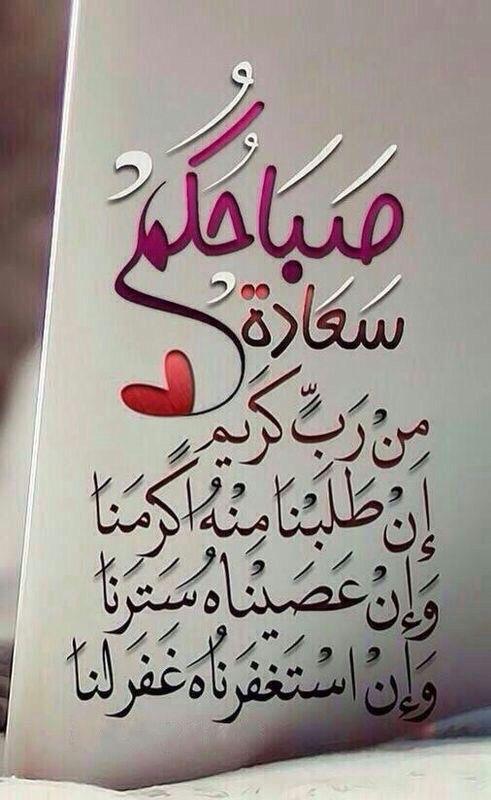 صَبَاحُكُم
سَعَادة
مِنْ رَبٍّ كَرِيم
إِنْ طَلَبْنَا مِنْهُ اكْرَمَنَا
وَإِنْ عَصَيْنَاهُ سَتَرَنَا
وَإِنْ اسْتَغْفَرنَاهُ غَفَرَ لنَا